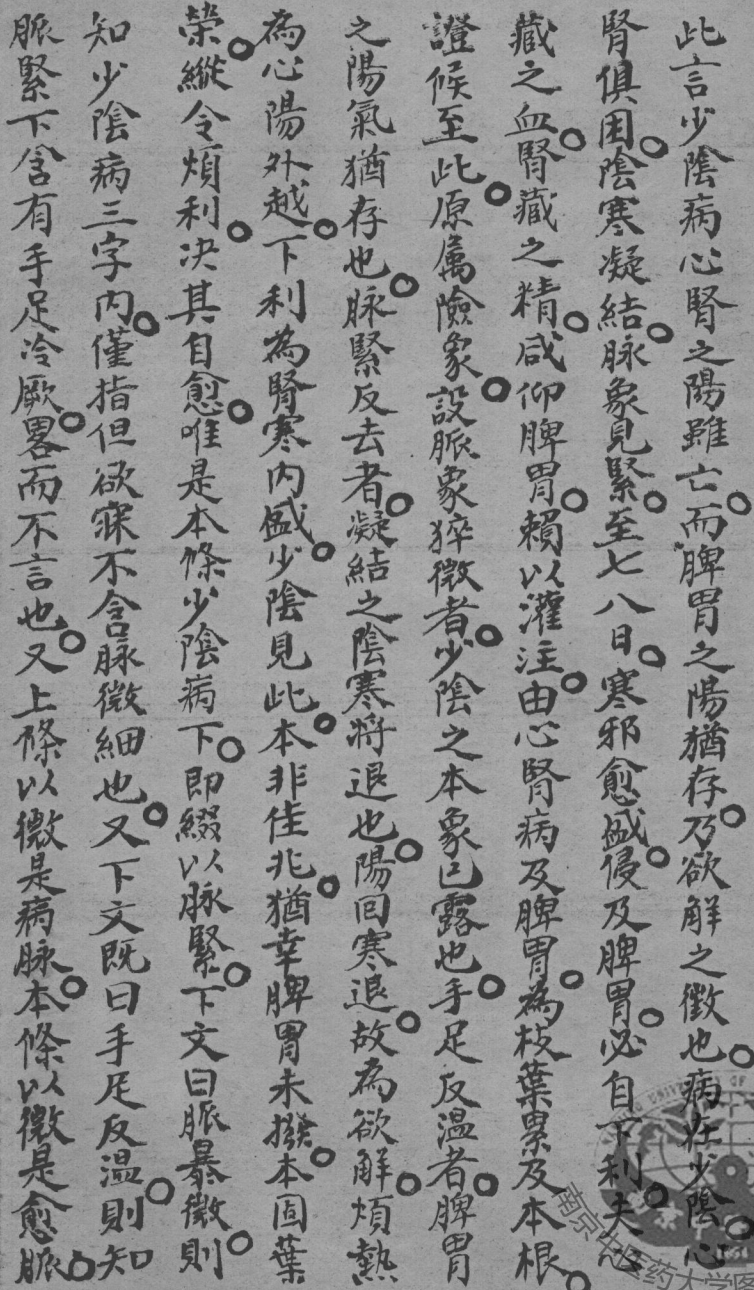 此言少陰病心腎之陽雖亡。而脾胃之陽猶存。乃欲解之徵也。病在少陰。心
腎俱困。陰寒凝結。脉象見緊。至七八日。寒邪愈盛。侵及脾胃。必自下利。夫心
藏之血。腎藏之精。咸仰脾胃。賴以灌注。由心腎病及脾胃。為枝葉累及本根。
證候至此。原属險象。設脈象猝微者。少陰之本象已露也。手足反温者。脾胃
之陽氣猶存也。脉緊反去者。凝結之陰寒将退也。陽回寒退。故為欲解。煩熱
為心陽外越。下利為腎寒内盛。少陰見此。本非佳兆。猶幸脾胃未撥。本固葉
榮。縱令煩利。决其自愈。唯是本條少陰病下。即綴以脉緊。下文曰脈暴微。則
知少陰病三字内。僅指但欲寐不含脉微細也。又下文既曰手足反温。則知
脈緊下含有手足冷厥。畧而不言也。又上條以微是病脉。本條以微是愈脈。
南京
医药大学图